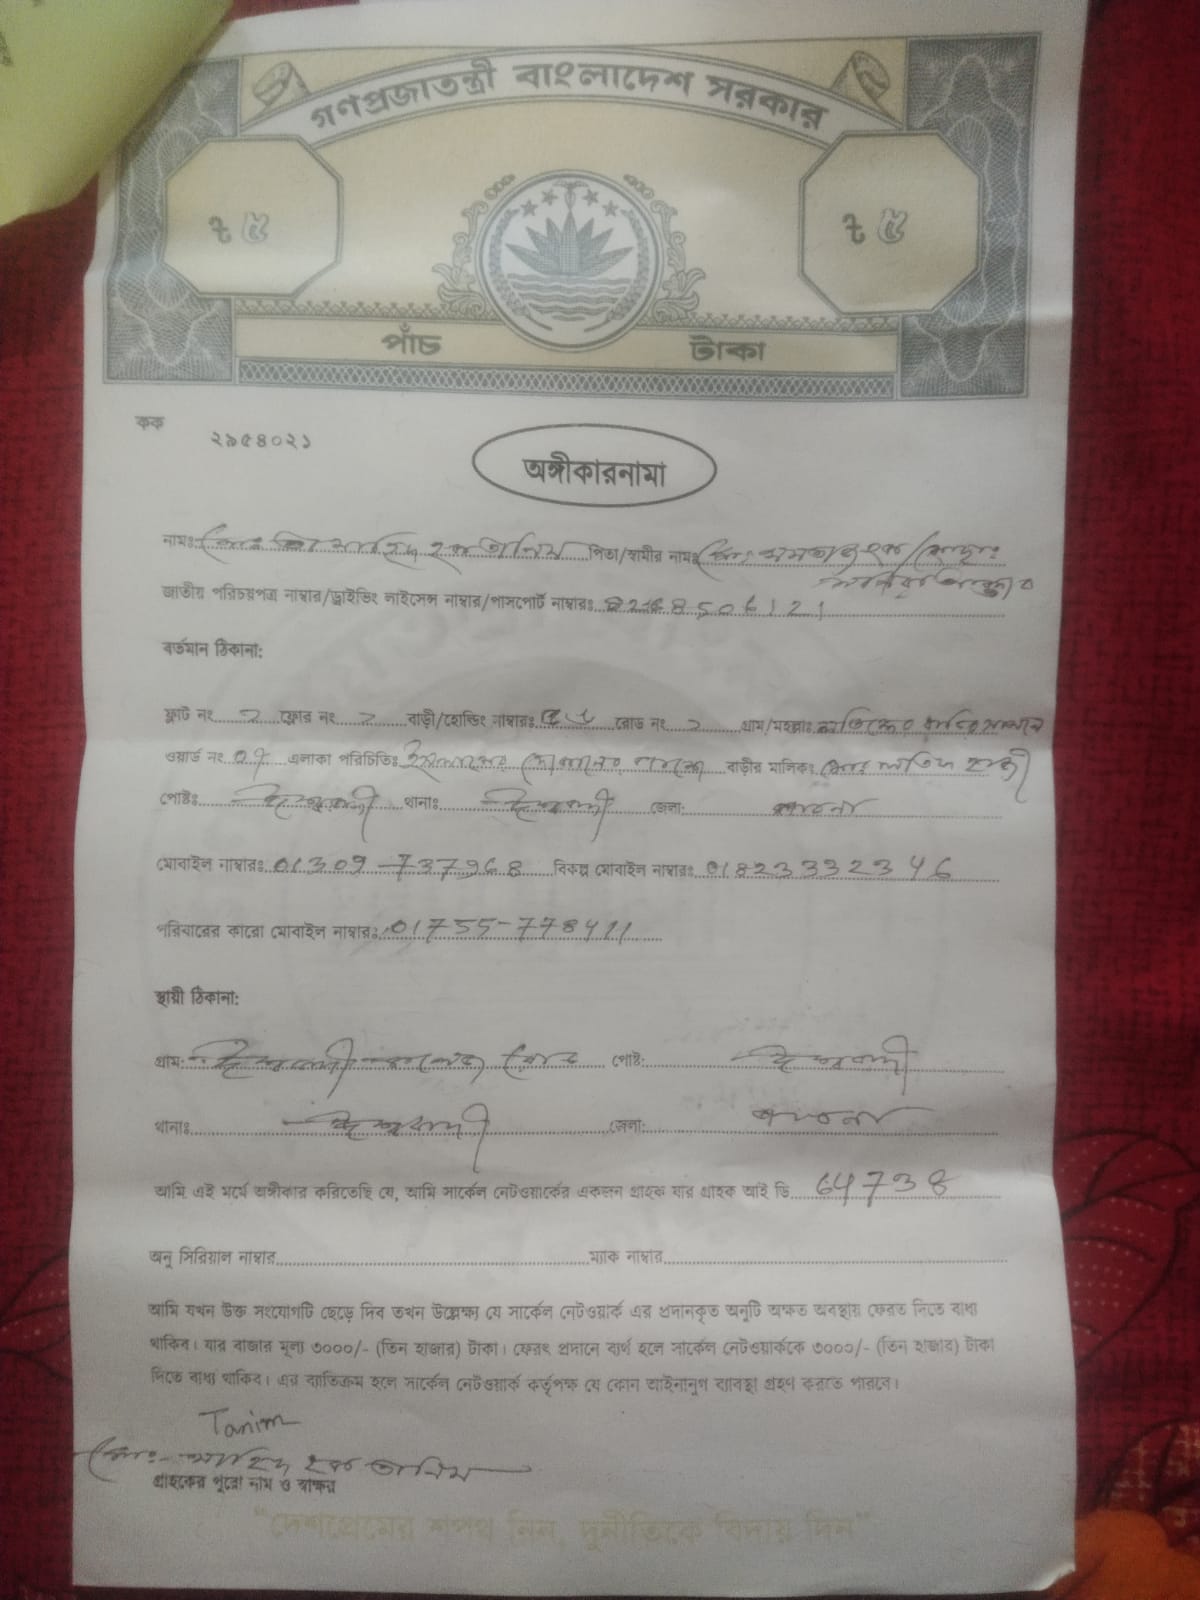 গণপ্রজাতন্ত্রী বাংলাদেশ সরকার
৳ ৫ ৳ ৫
পাঁচ টাকা
কক
২৯৫৪০২১
অঙ্গীকারনামা
নামঃ হক তানিম পিতা/স্বামীর নামঃ মোঃ
জাতীয় পরিচয়পত্র নাম্বার/ড্রাইভিং লাইসেন্স নাম্বার/পাসপোর্ট নাম্বারঃ
বর্তমান ঠিকানা:
ফ্লাট নং ২ ফ্লোর নং ২ বাড়ী/হোল্ডিং নাম্বারঃ রোড নং ২ গ্রাম/মহল্লাঃ
ওয়ার্ড নং 07 এলাকা পরিচিতিঃ দোকানের বাড়ীর মালিকঃ মোঃ
পোষ্টঃ ঈশ্বরদী থানাঃ ঈশ্বরদী জেলা: পাবনা
মোবাইল নাম্বারঃ 01309-737968 বিকল্প মোবাইল নাম্বারঃ 01823332346
পরিবারের কারো মোবাইল নাম্বারঃ 01755-778411
স্থায়ী ঠিকানা:
গ্রাম: ঈশ্বরদী কলেজ রোড পোষ্ট: ঈশ্বরদী
থানাঃ ঈশ্বরদী জেলা: পাবনা
আমি এই মর্মে অঙ্গীকার করিতেছি যে, আমি সার্কেল নেটওয়ার্কের একজন গ্রাহক যার গ্রাহক আই ডি 64738
অনু সিরিয়াল নাম্বার ম্যাক নাম্বার
আমি যখন উক্ত সংযোগটি ছেড়ে দিব তখন উল্লেক্ষ্য যে সার্কেল নেটওয়ার্ক এর প্রদানকৃত অনুটি অক্ষত অবস্থায় ফেরত দিতে বাধ্য
থাকিব। যার বাজার মূল্য ৩০০০/- (তিন হাজার) টাকা। ফেরৎ প্রদানে ব্যর্থ হলে সার্কেল নেটওয়ার্ককে ৩০০০/- (তিন হাজার) টাকা
দিতে বাধ্য থাকিব। এর ব্যতিক্রম হলে সার্কেল নেটওয়ার্ক কর্তৃপক্ষ যে কোন আইনানুগ ব্যাবস্থা গ্রহণ করতে পারবে।
Tanim
মোঃ হক তানিম
গ্রাহকের পুরো নাম ও স্বাক্ষর
"দেশপ্রেমের শপথ নিন, দুর্নীতিকে বিদায় দিন"